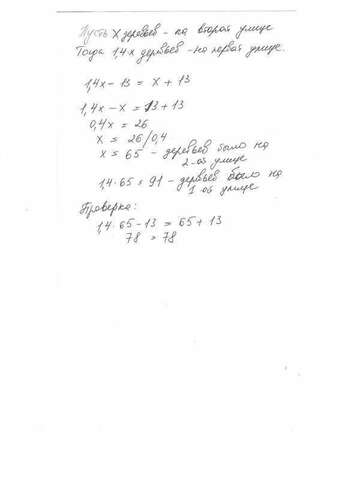 Пусть X деревьев - на второй улице
Тогда 1,4x деревьев - на первой улице.
1,4x - 13 = x + 13
1,4x - x = 13 + 13
0,4x = 26
x = 26/0,4
x = 65 - деревьев было на
2-ой улице
1,4 · 65 = 91 - деревьев было на
1 ой улице
Проверка:
1,4 · 65 - 13 = 65 + 13
78 = 78